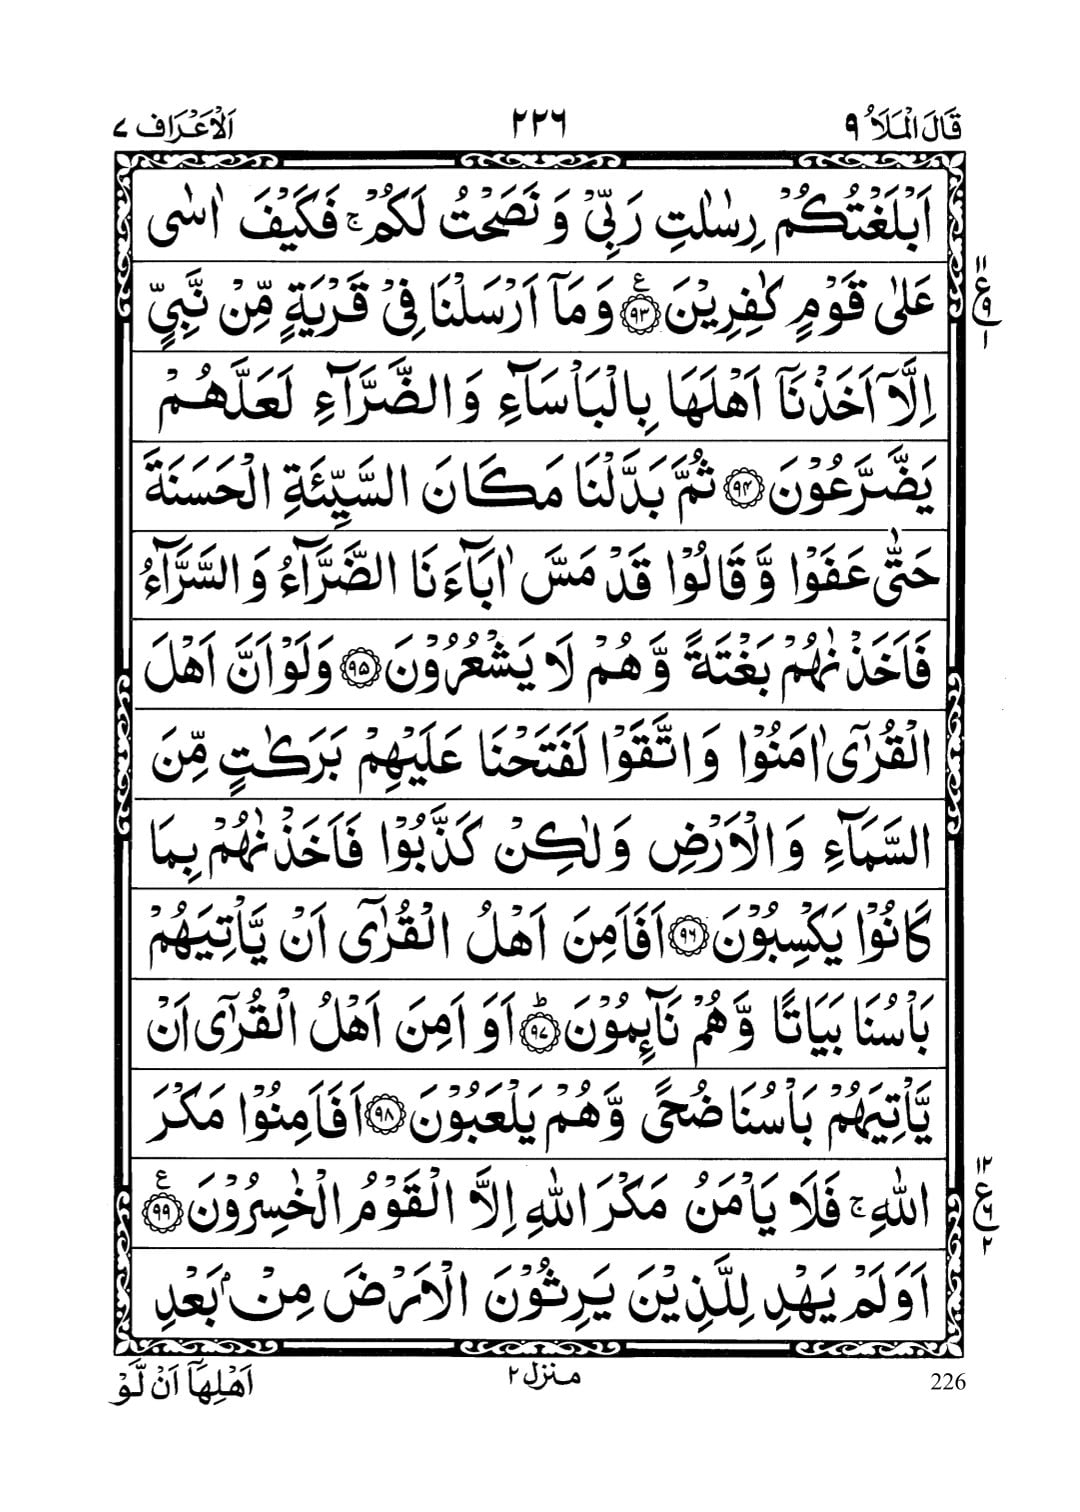 قَالَ الْمَلَاُ ۹ ۲۲۶ اَلْاَعْرَاف ۷
اَبْلَغْتُكُمْ رِسٰلٰتِ رَبِّیْ وَ نَصَحْتُ لَكُمْ ۚ فَكَیْفَ اٰسٰی
عَلٰی قَوْمٍ كٰفِرِیْنَ ۹۳ ع وَ مَاۤ اَرْسَلْنَا فِیْ قَرْیَةٍ مِّنْ نَّبِیٍّ
اِلَّاۤ اَخَذْنَاۤ اَهْلَهَا بِالْبَاْسَآءِ وَ الضَّرَّآءِ لَعَلَّهُمْ
یَضَّرَّعُوْنَ ۹۴ ثُمَّ بَدَّلْنَا مَكَانَ السَّیِّئَةِ الْحَسَنَةَ
حَتّٰی عَفَوْا وَّ قَالُوْا قَدْ مَسَّ اٰبَآءَنَا الضَّرَّآءُ وَ السَّرَّآءُ
فَاَخَذْنٰهُمْ بَغْتَةً وَّ هُمْ لَا یَشْعُرُوْنَ ۹۵ وَ لَوْ اَنَّ اَهْلَ
الْقُرٰۤی اٰمَنُوْا وَ اتَّقَوْا لَفَتَحْنَا عَلَیْهِمْ بَرَكٰتٍ مِّنَ
السَّمَآءِ وَ الْاَرْضِ وَ لٰكِنْ كَذَّبُوْا فَاَخَذْنٰهُمْ بِمَا
كَانُوْا یَكْسِبُوْنَ ۹۶ اَفَاَمِنَ اَهْلُ الْقُرٰۤی اَنْ یَّاْتِیَهُمْ
بَاْسُنَا بَیَاتًا وَّ هُمْ نَآىِٕمُوْنَ ۹۷ ؕ اَوَ اَمِنَ اَهْلُ الْقُرٰۤی اَنْ
یَّاْتِیَهُمْ بَاْسُنَا ضُحًی وَّ هُمْ یَلْعَبُوْنَ ۹۸ اَفَاَمِنُوْا مَكْرَ
اللّٰهِ ۚ فَلَا یَاْمَنُ مَكْرَ اللّٰهِ اِلَّا الْقَوْمُ الْخٰسِرُوْنَ ۹۹ ع
اَوَ لَمْ یَهْدِ لِلَّذِیْنَ یَرِثُوْنَ الْاَرْضَ مِنْۢ بَعْدِ
۱۱
ع ۹
۱
۱۲
ع ۶
۲
226 منزل ۲ اَهْلِهَاۤ اَنْ لَّوْ